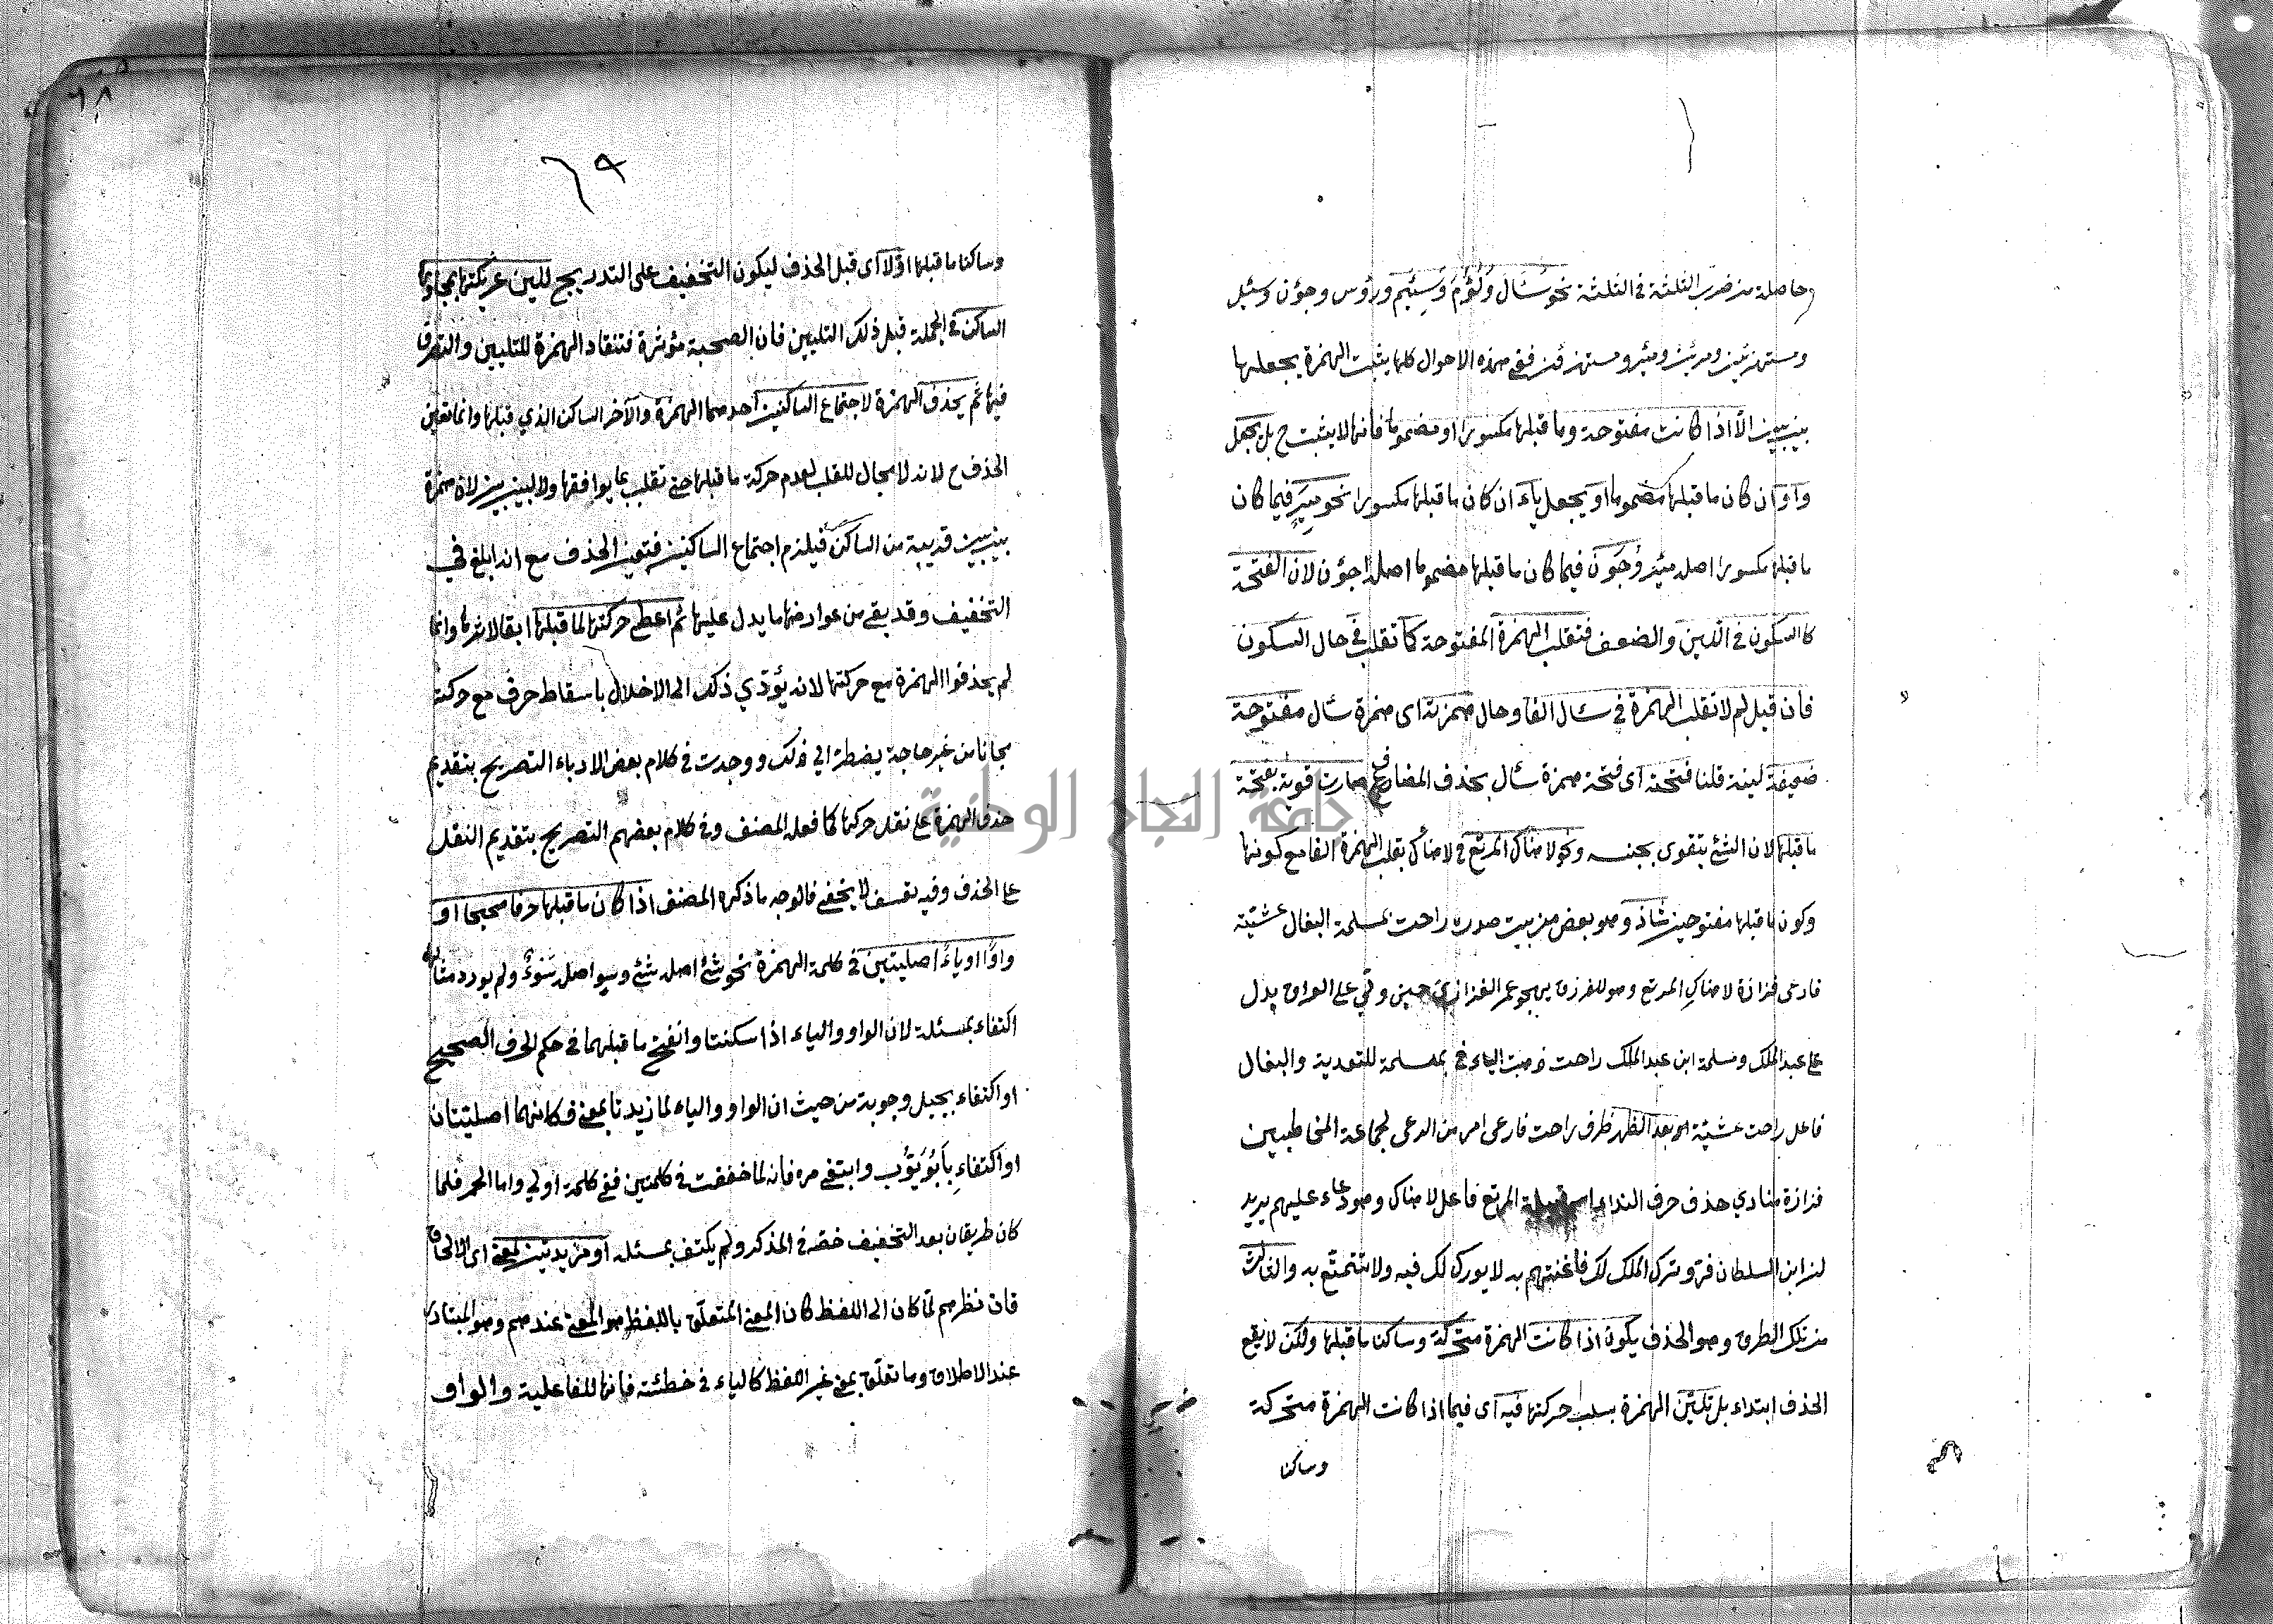 حاصلة من ضرب الثلثة في الثلثة نحو سَئَال وَلَؤُمَ وَسَئِيم ورؤس وجؤن وسئل
ومستهزئين ومئر ومستهزؤن ففي هذه الاحوال كلها يثبت الهمزة بجعلها
بين بين الّا اذا كانت مفتوحة وما قبلها مكسورا او مضموما فانها لا يثبت ح بل يجعل
واوا ان كان ما قبلها مضموما او يجعل ياء ان كان ما قبلها مكسورا نحو مِيَر فيما كان
ما قبلها مكسورا اصله مئر وجُوَن فيما كان ما قبلها مضموما اصله جؤن لان الفتحة
كالسكون في اللين والضعف فتقلب الهمزة المفتوحة كما تقلب في حال السكون
فان قيل لم لا تقلب الهمزة في سئال الفا وحال همزته اى همزة سئال مفتوحة
ضعيفة لينة قلنا فتحته اى فتحة همزة سئال بحذف المضاف صارت قوية بفتحة
ما قبلها لان الشئ يتقوى بجنسه ونحو لا هناك المرتع في لا هنأك بقلب الهمزة الفا مع كونها
وكون ما قبلها مفتوحين شاذ وهو بعض من بيت صدره راحت بمسلمة البغال عشيّة
فارعى فزازة لا هناك المرتع وهو للفرزق يهجو عمر الفزازي حين ولّي على العراق بدل
على عبد الملك ومسلمة ابن عبد الملك راحت ذهبت الباء في بمسلمة للتعدية والبغال
فاعل راحت عشيّة اى بعد الظهر ظرف راحت فارعى امر من الرعى لجماعة المخاطبين
فزازة منادي حذف حرف النداء اسم قبيلة المرتع فاعل لا هناك وهو دعاء عليهم يريد
ان ابن السلطان فرّ وترك الملك لك فاغنتهم به لا بورك لك فيه ولا تتمتّع به والثالث
من تلك الطرق وهو الحذف يكون اذا كانت الهمزة متحركة وساكنا ما قبلها ولكن لا يقع
الحذف ابتداء بل تليّن الهمزة بسلب حركتها فيه اى فيما اذا كانت الهمزة متحركة
وساكنا
٦٨
٦٩
وساكنا ما قبلها اوّلا اى قبل الحذف ليكون التخفيف على التدريج للين عريكتها بمجاورتها
الساكن في الجملة قبل ذلك التليين فان الصحبة مؤثرة فتنقاد الهمزة للتليين والتصرف
فيها ثم يحذف الهمزة لاجتماع الساكنين احدهما الهمزة والآخر الساكن الذي قبلها وانما تعين
الحذف ح لانه لا مجال للقلب لعدم حركة ما قبلها حتى تقلب بما يوافقها ولا لبين بين لان همزة
بين بين قريبة من الساكن فيلزم اجتماع الساكنين فتعين الحذف مع انه ابلغ في
التخفيف وقد بقى من عوارضها ما يدل عليها ثم اعطى حركتها لما قبلها ابقاء لاثرها وانما
لم يحذفوا الهمزة مع حركتها لانه يؤدّي ذلك الى الاخلال باسقاط حرف مع حركة
مجانا من غير حاجة يضطر الي ذلك ووجدت في كلام بعض الادباء التصريح بتقديم
حذف الهمزة على نقل حركتها كما فعله المصنف وفي كلام بعضهم التصريح بتقديم النقل
على الحذف وفيه تعسف لا يخفى فالوجه ما ذكره المصنف اذا كان ما قبلها حرفا صحيحا او
واوًا او ياءً اصليتين في كلمة الهمزة نحو شئ اصله شئ وسو اصله سَوْءٌ ولم يورد مثاله
اكتفاء بمسئلة لان الواو والياء اذا سكنتا وانفتح ما قبلهما في حكم الحرف الصحيح
او اكتفاء بجيل وجوبة من حيث ان الواو والياء لما زيدتا بمعنى فكانهما اصليتان
او اكتفاءِ بأبُوَيّوُب وابتغى مره فانه لما خففت في كلمتين ففي كلمة اولي واما الحمر فلما
كان طريقان بعد التخفيف خصّه في المذكر ولم يكتف بمسئله او مزيدتين لمعنى اى للالحاق
فان نظرهم لمّا كان الى اللفظ كان المعنى المتعلّق باللفظ هو المعنى عندهم وهو المتبادر
عند الاطلاق وما تعلّق بمعنى غير اللفظ كالياء في خطئتة فانها للفاعلية والواو
جامعة النجاح الوطنية